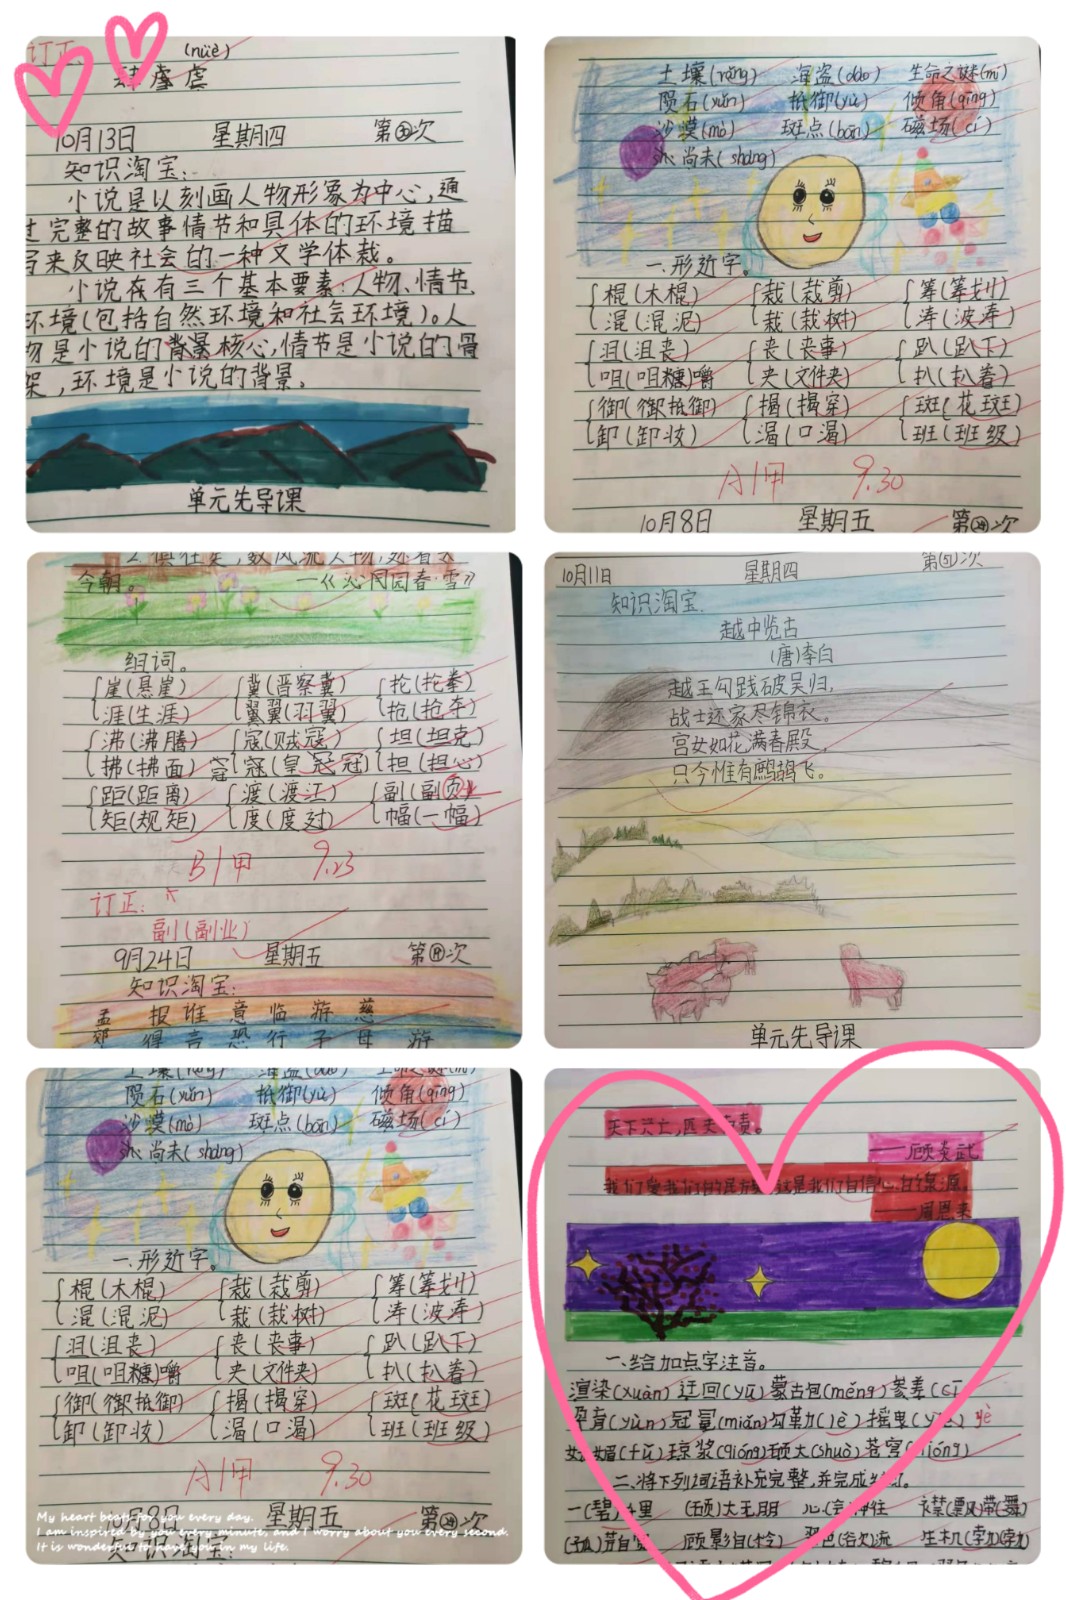 订正:
(nüè)
肆虐 虐
10月13日 星期四 第㉝次
知识淘宝:
小说是以刻画人物形象为中心,通
过完整的故事情节和具体的环境描
写来反映社会的一种文学体裁。
小说在有三个基本要素:人物、情节、
环境(包括自然环境和社会环境)。人
物是小说的背景核心,情节是小说的骨
架,环境是小说的背景。
单元先导课
土壤(rǎng) 海盗(dào) 生命之谜(mí)
陨石(yǔn) 抵御(yù) 倾角(qīng)
沙漠(mò) 斑点(bān) 磁场(cí)
尚未(shàng)
一.形近字。
棍(木棍) 裁(裁剪) 筹(筹划)
混(混泥) 栽(栽树) 涛(波涛)
沮(沮丧) 丧(丧事) 趴(趴下)
咀(咀糖)嚼 夹(文件夹) 扒(扒着)
御(御抵御) 揭(揭穿) 斑(花斑)
卸(卸妆) 渴(口渴) 班(班级)
A1甲 9.30
10月8日 星期五
今朝。 —《沁园春·雪》
组词。
崖(悬崖) 冀(晋察冀) 抡(抡拳)
涯(生涯) 翼翼(羽翼) 抢(抢夺)
沸(沸腾) 寇(贼寇) 坦(坦克)
拂(拂面) 冠(皇冠) 担(担心)
距(距离) 渡(渡江) 副(副页)
矩(规矩) 度(度过) 幅(一幅)
B1甲 9.23
订正:
副(副业)
9月24日 星期五 第⑲次
知识淘宝:
孟 报 谁 意 临 游 慈
郊 得 言 恐 行 子 母 游
10月11日 星期四 第㉛次
知识淘宝.
越中览古
(唐)李白
越王勾践破吴归,
战士还家尽锦衣。
宫女如花满春殿,
只今惟有鹧鸪飞。
单元先导课
陨石(yǔn) 抵御(yù) 倾角(qīng)
沙漠(mò) 斑点(bān) 磁场(cí)
尚未(shàng)
一.形近字。
棍(木棍) 裁(裁剪) 筹(筹划)
混(混泥) 栽(栽树) 涛(波涛)
沮(沮丧) 丧(丧事) 趴(趴下)
咀(咀糖)嚼 夹(文件夹) 扒(扒着)
御(御抵御) 揭(揭穿) 斑(花斑)
卸(卸妆) 渴(口渴) 班(班级)
A1甲 9.30
10月8日 星期五
知识淘宝:
My heart beats for you every day.
I am inspired by you every minute, and I worry about you every second.
It is wonderful to have you in my life.
天下兴亡,匹夫有责。
——顾炎武
我们爱我们的民族,这是我们自信心的泉源。
——周恩来
一.给加点字注音。
渲染(xuàn) 迂回(yū) 蒙古包(měng) 参差(cī
孕育(yùn) 冠冕(miǎn) 勾勒(lè) 摇曳(yè) yè
妩媚(fǔ) 琼浆(qióng) 硕大(shuò) 苍穹(qióng)
二.将下列词语补充完整,并完成练习。
一(碧)千里 (硕)大无朋 心(会)神往 襟(飘)带(舞)
(孤)芳自赏 顾影自(怜) 翠色(欲)流 生机(勃)(勃)